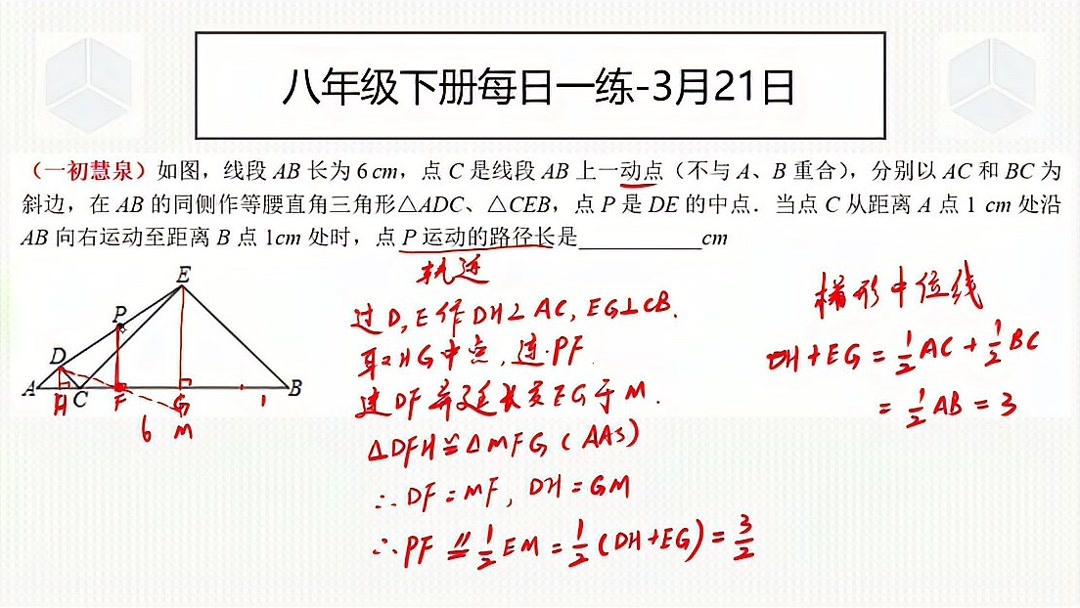 八年级下册每日一练-3月21日
（一初慧泉）如图，线段 AB 长为 6cm，点 C 是线段 AB 上一动点（不与 A、B 重合），分别以 AC 和 BC 为
斜边，在 AB 的同侧作等腰直角三角形△ADC、△CEB，点 P 是 DE 的中点．当点 C 从距离 A 点 1 cm 处沿
AB 向右运动至距离 B 点 1cm 处时，点 P 运动的路径长是____________cm
轨迹
过D,E作DH⊥AC, EG⊥CB.
取HG中点, 连PF.
连DF并延长交EG于M.
△DFH≌△MFG (AAS)
∴DF=MF, DH=GM
∴PF∥=½EM=½(DH+EG)=3/2
梯形中位线
DH+EG=½AC+½BC
=½AB=3
E
P
D
A H C F G 1 B
6 M